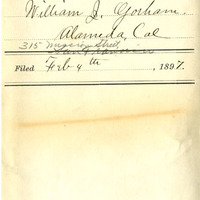 William J. Gorham.
Alameda, Cal
315 Street,
San Francisco
Filed Feb 4th, 1897.